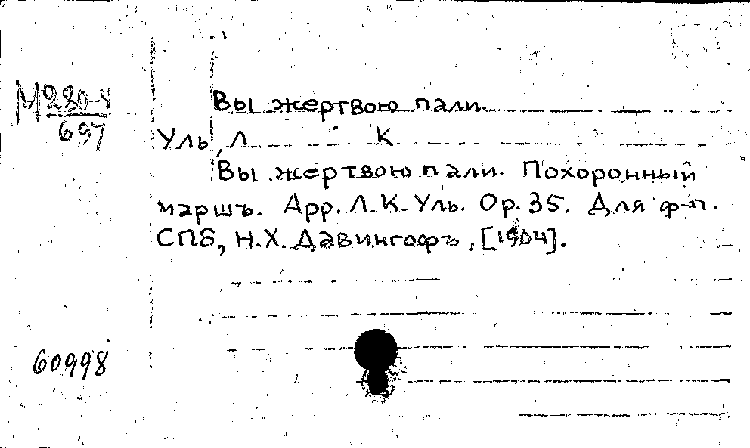 М 280-8
697
Вы жертвою пали.
Уль, Л К
Вы жертвою пали. Похоронный
маршъ. Арр. Л. К. Уль. Ор. 35. Для ф-п.
СПб, Н. Х. Давингофъ, [1904].
60998